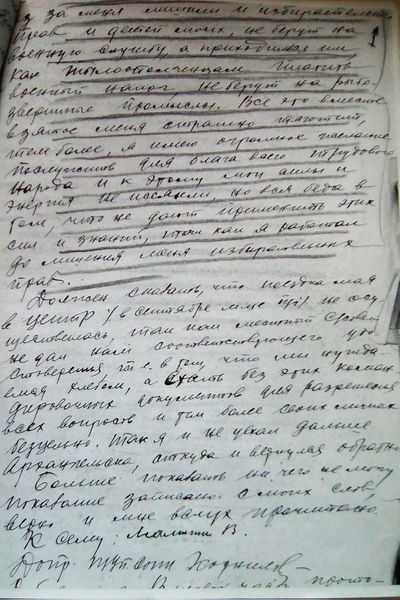 за меня лишили и избирательных
прав и детей моих, не берут на
военную службу, а приходится им
как тылоополченцам платить
военный налог, не берут на рыбо-
зверинные промыслы. Все это вместе
взятое меня страшно тяготит,
тем более, я имею огромное желание
послужить для блага всего трудового
народа и к этому мои силы и
энергия не иссякли, но вся беда в
том, что не дают применить этих
сил и знаний, так как я работал
до лишения меня избирательных
прав.
Должен сказать, что поездка моя
в центр /в сентябре м-це т/г/ не осу-
ществилась, так как местный с/совет
не дал нам соответствующего удо-
стоверения т.е. в том, что мы нужда-
емся хлебом, а ехать без этих коман-
дировочных документов для разрешения
всех вопросов и там более своих личных
бесцельно. Так я и не уехал дальше
Архангельска, откуда и вернулся обратно
Больше показать ни чего не могу
показание записано с моих слов,
верно и мне вслух прочитано.
К сему: В.
Допр.